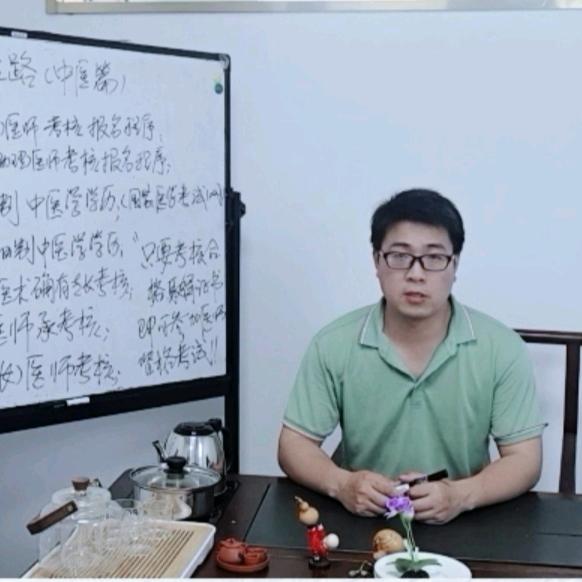 路(中医篇)
医师考核报名程序;
助理医师考核报名程序;
制中医学学历,(国家医学考试网)
日制中医学学历,"只要考核合
医术确有专长考核; 格取得证书
医师承考核; 即可参加医师
)医师考核; 资格考试!!